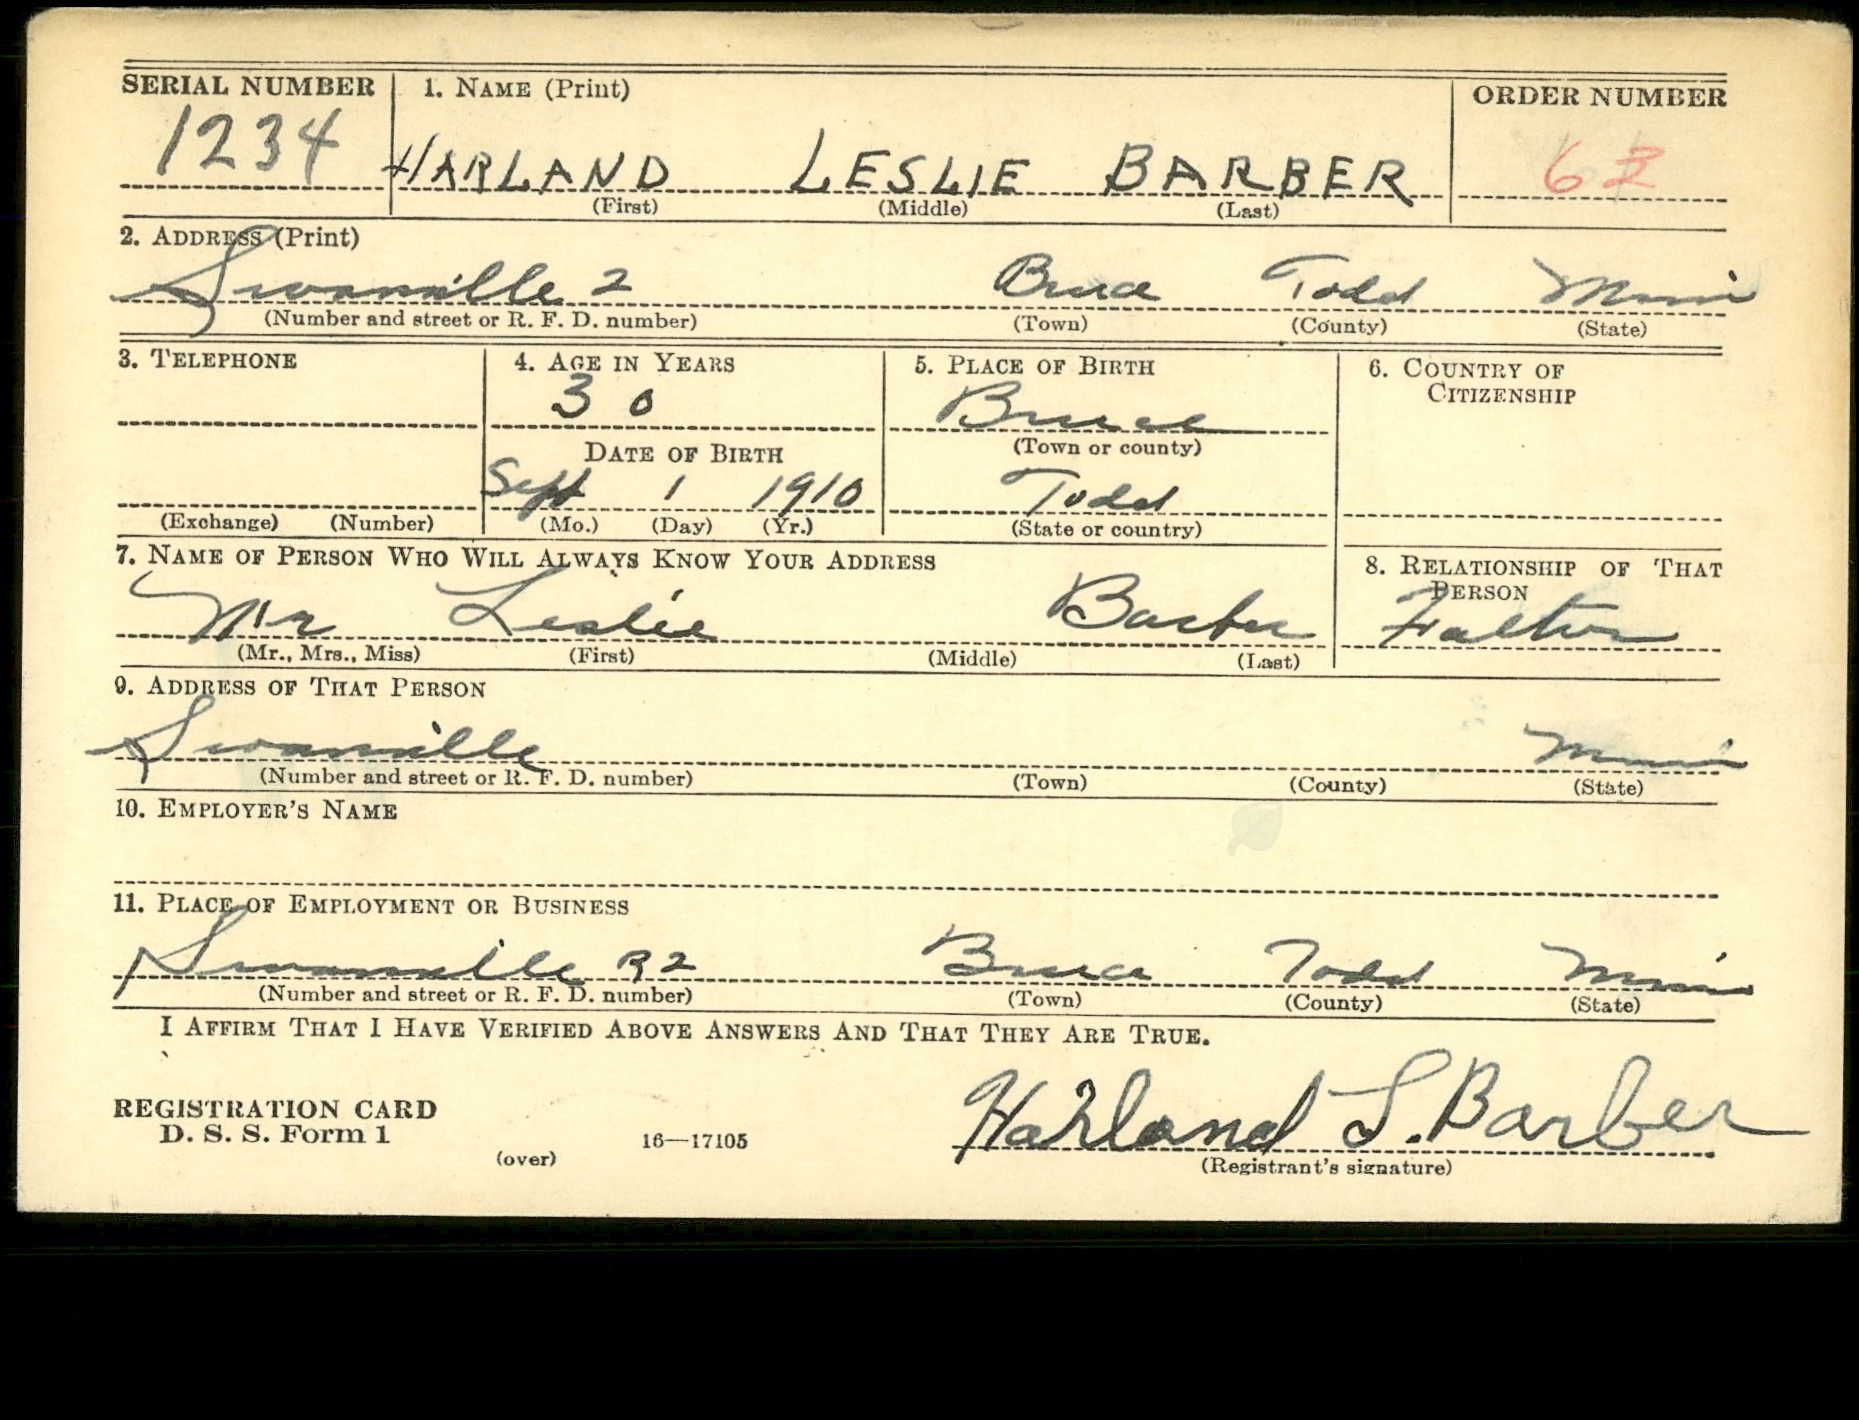 SERIAL NUMBER 1. NAME (Print) ORDER NUMBER
1234 HARLAND LESLIE BARBER 6
(First) (Middle) (Last)
2. ADDRESS (Print)
Swanville 2 Bruce Todd Minn
(Number and street or R. F. D. number) (Town) (County) (State)
3. TELEPHONE 4. AGE IN YEARS 5. PLACE OF BIRTH 6. COUNTRY OF
CITIZENSHIP
30 Bruce
DATE OF BIRTH (Town or county)
Sept 1 1910 Todd
(Exchange) (Number) (Mo.) (Day) (Yr.) (State or country)
7. NAME OF PERSON WHO WILL ALWAYS KNOW YOUR ADDRESS 8. RELATIONSHIP OF THAT
PERSON
Mr Leslie Barber Father
(Mr., Mrs., Miss) (First) (Middle) (Last)
9. ADDRESS OF THAT PERSON
Swanville Minn
(Number and street or R. F. D. number) (Town) (County) (State)
10. EMPLOYER'S NAME
11. PLACE OF EMPLOYMENT OR BUSINESS
Swanville R2 Bruce Todd Minn
(Number and street or R. F. D. number) (Town) (County) (State)
I AFFIRM THAT I HAVE VERIFIED ABOVE ANSWERS AND THAT THEY ARE TRUE.
REGISTRATION CARD
D. S. S. Form 1 Harland L. Barber
(over) 16—17105 (Registrant's signature)